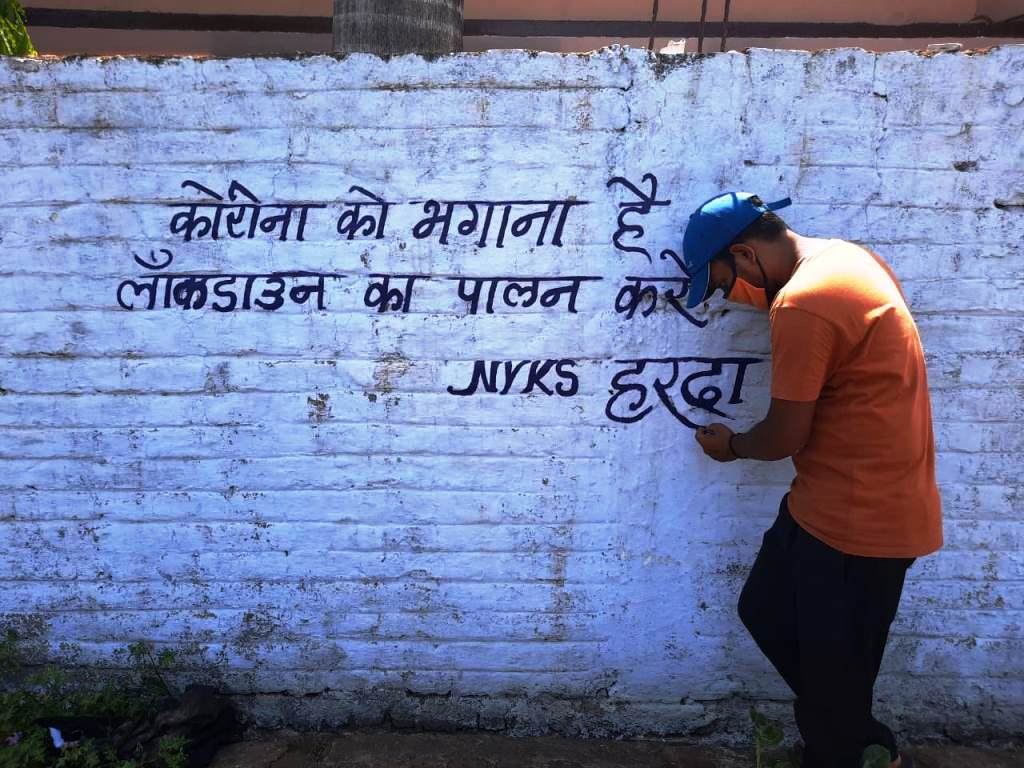 कोरोना को भगाना है
लॉकडाउन का पालन करे
NYKS हरदा